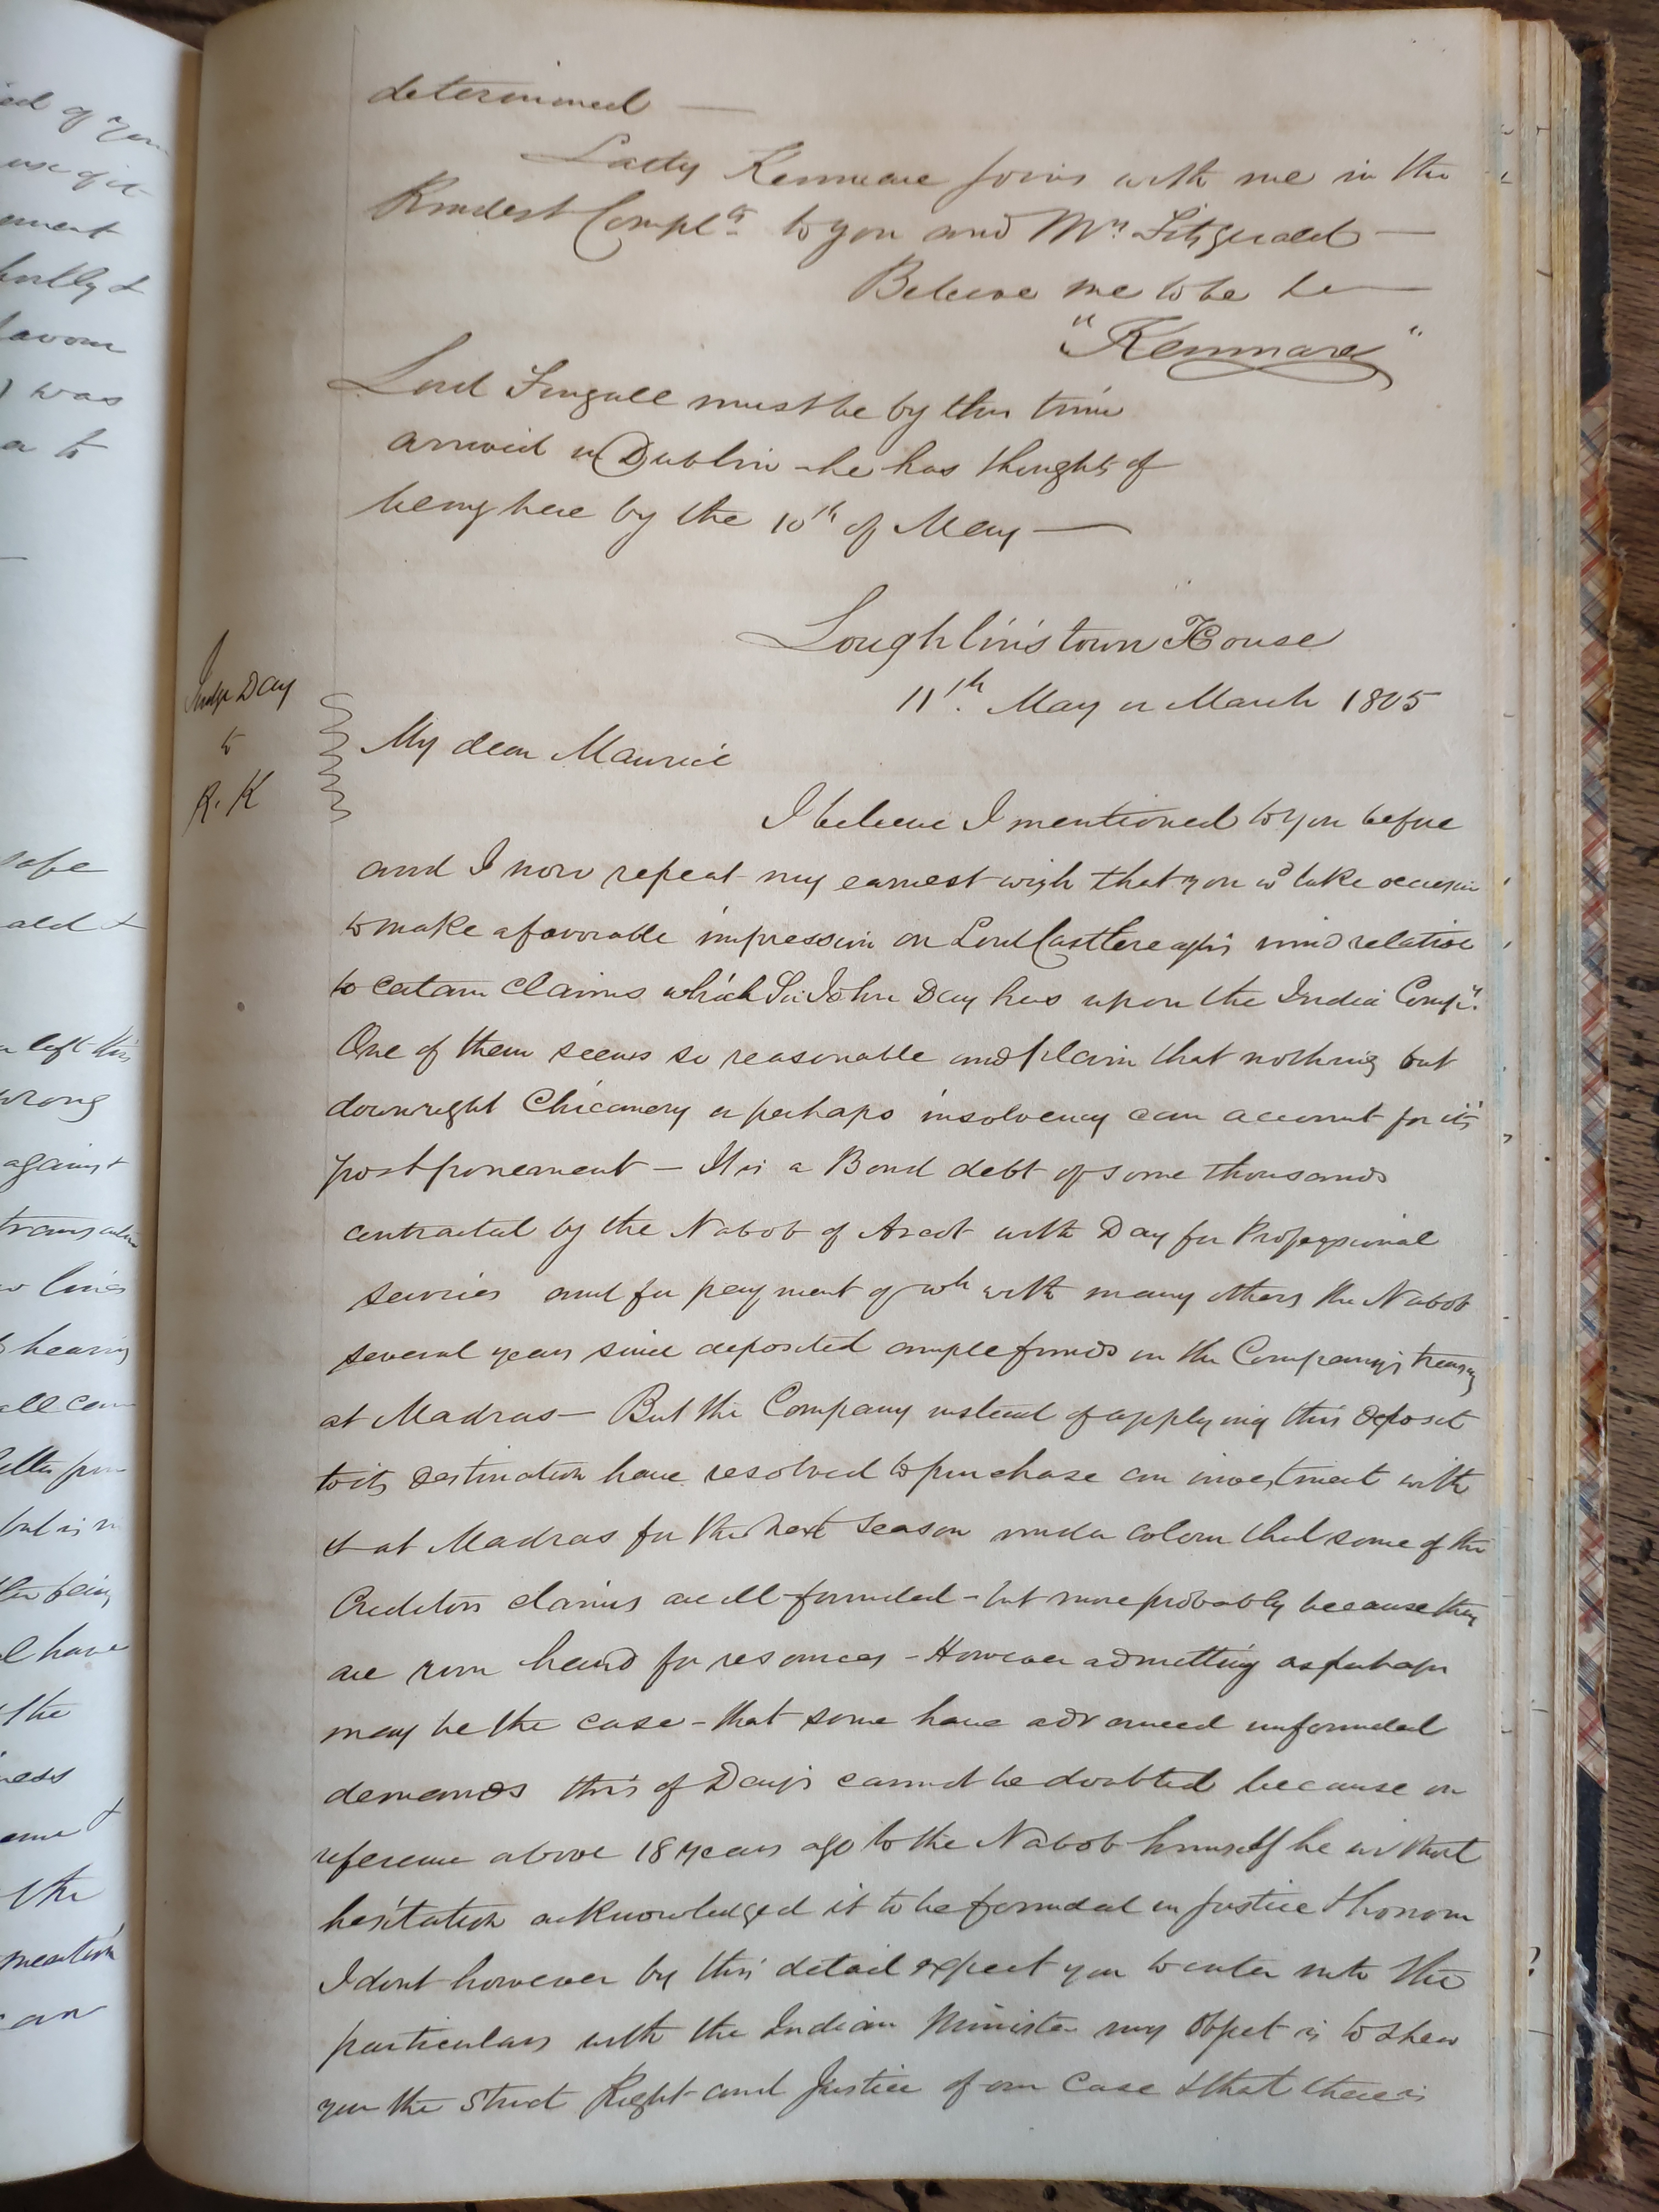 determined —
Lady Kenmare joins with me in the
Kindest Complts to you and Mrs Fitzgerald —
Believe me to be &c —
"Kenmare"
Lord Fingall must be by this time
arrived in Dublin - he has thoughts of
being here by the 10th of May —
Loughlinstown House
11th. May or March 1805
Judge Day
to
R. K
My dear Maurice
I believe I mentioned to you before
and I now repeat my earnest wish that you wd take occasion
to make a favorable impression on Lord Castlereagh's mind relative
to certain claims which Sir John Day has upon the India Compy.
One of them seems so reasonable and plain that nothing but
downright Chicanery or perhaps insolvency can account for its
postponement — It is a Bond debt of some thousands
contracted by the Nabob of Arcot with Day for Professional
services and for payment of wh with many others the Nabob
several years since deposited ample funds in the Company's treasury
at Madras — But the Company instead of applying this deposit
to its destination have resolved to purchase an investment with
it at Madras for the next Season under colour that some of the
Creditors claims are ill-founded - but more probably because they
are run hard for resources - However admitting as perhaps
may be the case - that some have advanced unfounded
demands this of Day's cannot be doubted because on
reference above 18 years ago to the Nabob himself he without
hesitation acknowledged it to be founded in Justice & honour
I dont however by this detail expect you to enter into the
particulars with the Indian Minister my Object is to shew
you the Strict Right and Justice of our Case & that there is